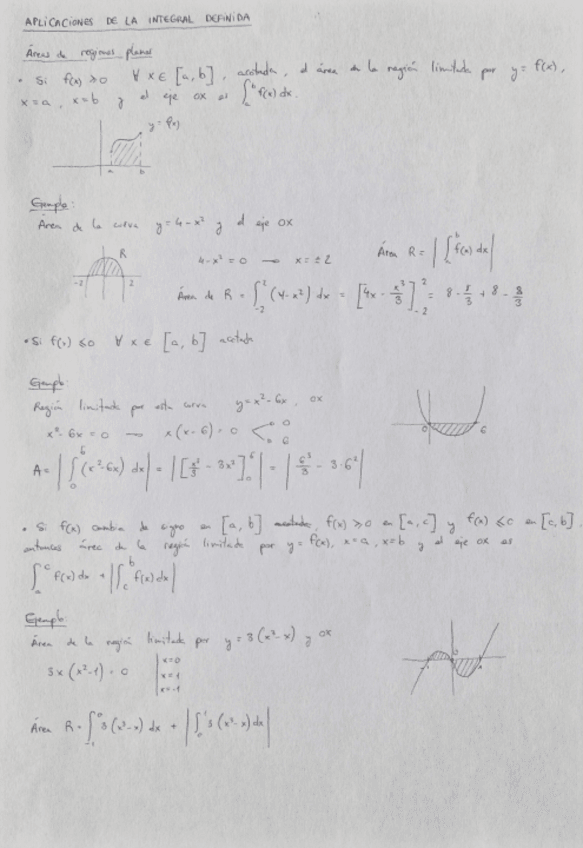 APLICACIONES DE LA INTEGRAL DEFINIDA
Áreas de regiones planas
• Si f(x) ≥ 0 ∀ x ∈ [a, b], acotada, el área de la región limitada por y = f(x),
x = a, x = b y el eje OX es ∫_a^b f(x) dx.
y = f(x)
a b
Ejemplo:
Área de la curva y = 4 - x² y el eje OX
R
-2 2
4 - x² = 0 → x = ±2
Área R = |∫_a^b f(x) dx|
Área de R = ∫_{-2}^{2} (4 - x²) dx = [4x - x³/3]_{-2}^{2} = 8 - 8/3 + 8 - 8/3
• Si f(x) ≤ 0 ∀ x ∈ [a, b] acotada
Ejemplo:
Región limitada por esta curva y = x² - 6x, OX
x² - 6x = 0 → x(x - 6) = 0 < 0 6
0 6
A = |∫_0^6 (x² - 6x) dx| = |[x³/3 - 3x²]_0^6| = |6³/3 - 3·6²|
• Si f(x) cambia de signo en [a, b] acotada, f(x) ≥ 0 en [a, c] y f(x) ≤ 0 en [c, b],
entonces área de la región limitada por y = f(x), x = a, x = b y el eje OX es
∫_a^c f(x) dx + |∫_c^b f(x) dx|
Ejemplo:
Área de la región limitada por y = 3(x³ - x) y OX
3x(x² - 1) = 0 | x = 0 x = 1 x = -1
Área R = ∫_{-1}^0 3(x³ - x) dx + |∫_0^1 3(x³ - x) dx|